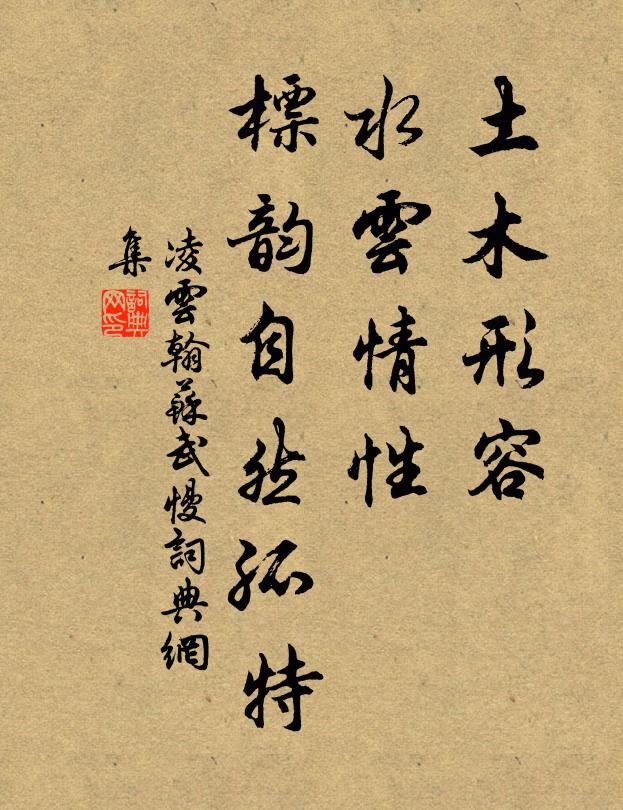 土木形容
水雲情性
標韵自然孤特
凌雲翰蘇武慢詞典網
集
詞典網印